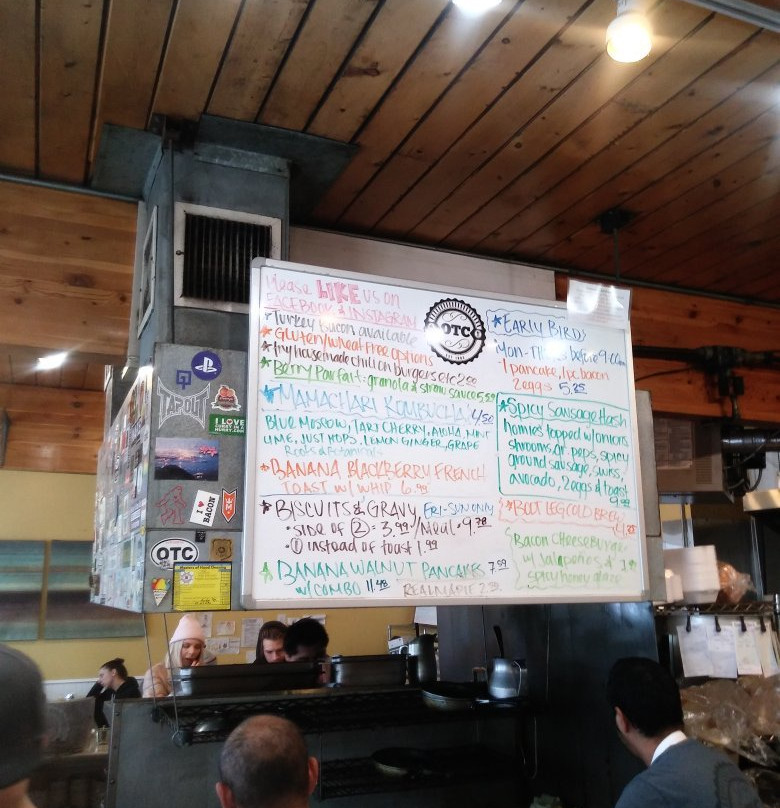 Please LIKE us on
FACEBOOK & INSTAGRAM
* Turkey bacon available
* Gluten/wheat free options
* Try housemade chili on burgers etc 2.50
* Berry Parfait: granola & straw sauce 5.50
* MAMACHARI KOMBUCHA 4/50
BLUE MOSCOW, TART CHERRY, MINT
LIME, JUST HOPS, LEMON GINGER, GRAPE
Roots & Botanicals
* BANANA BLACKBERRY FRENCH
TOAST w/ WHIP 6.99
* BISCUITS & GRAVY FRI-SUN ONLY
• side of ② = 3.99/Meal • 9.28
• ① instead of toast 1.99
BANANA WALNUT PANCAKES 7.99
w/ COMBO 11.48
OTC
* EARLY BIRD
Mon- before 9:00am
1 pancake, 1pc. bacon
2 eggs 5.25
* Spicy Sausage Hash
homies topped w/onions
shrooms, gr. peps, spicy
ground sausage, swiss,
avocado, 2 eggs & toast
9.99
* BOOTLEG COLD BREW
Bacon Cheeseburger
w/ Jalapeños &
spicy honey glaze
TAPOUT
I LOVE
I ♥ BACON
OTC